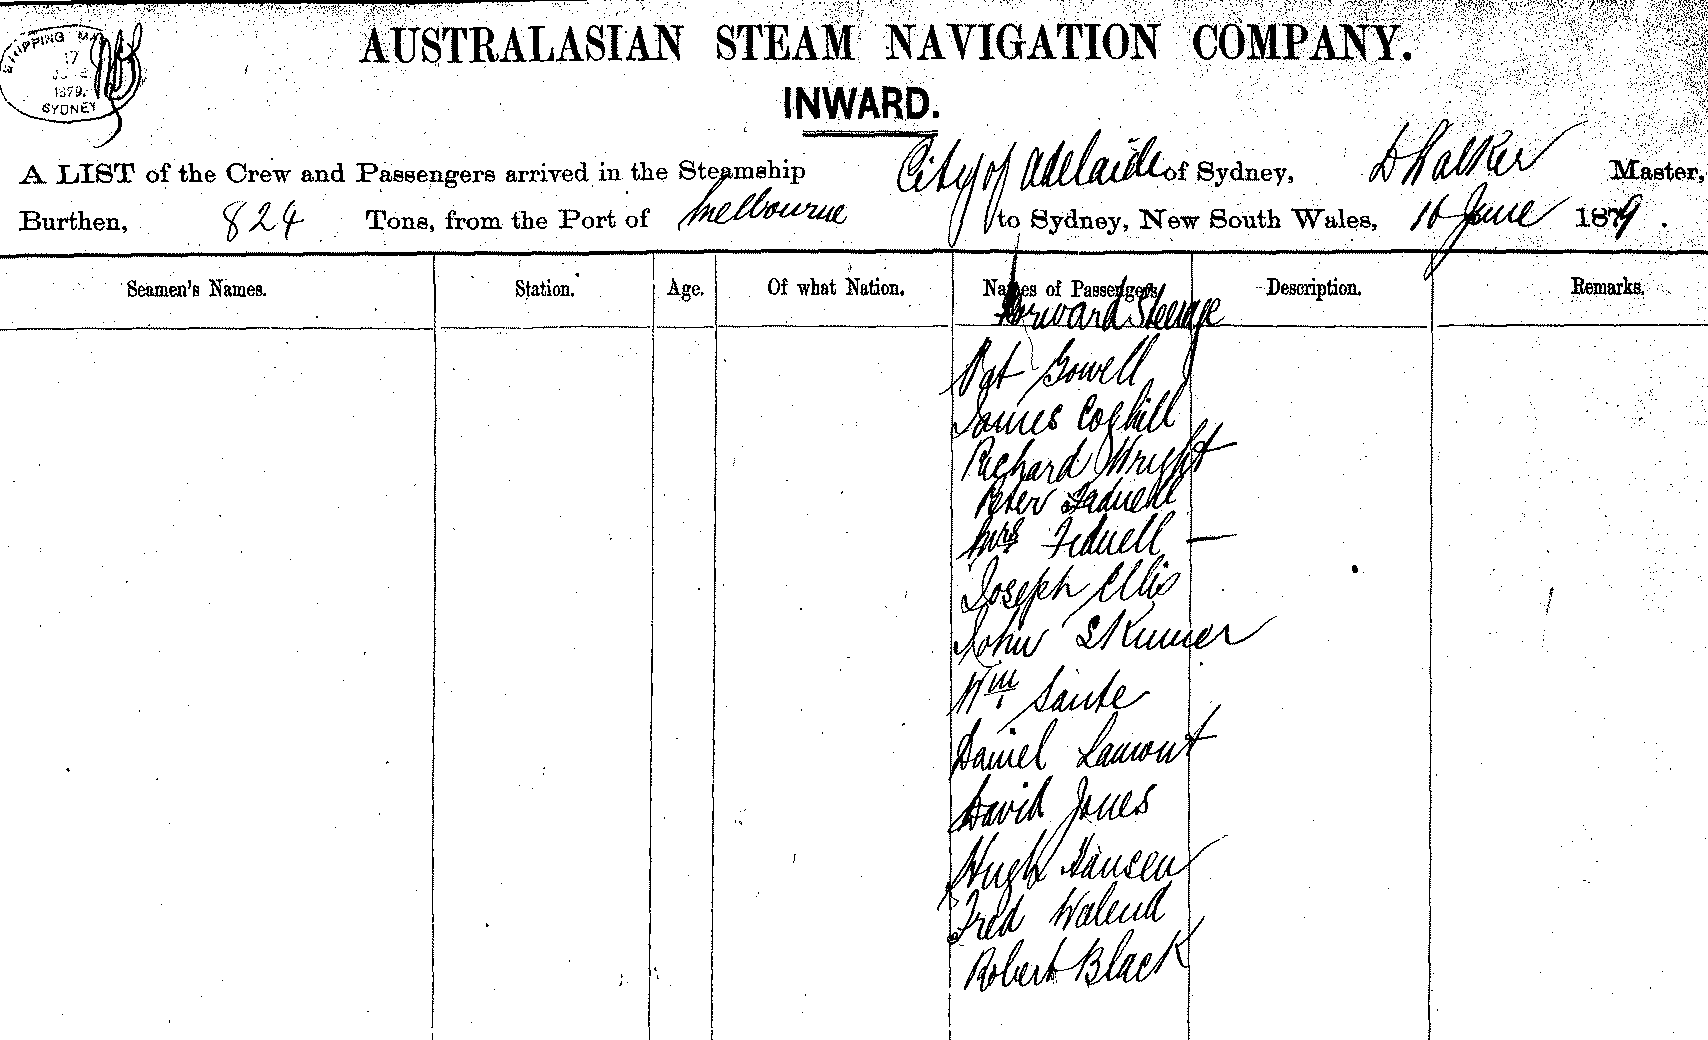 SHIPPING MA
17
1879.
SYDNEY
AUSTRALASIAN STEAM NAVIGATION COMPANY.
INWARD.
A LIST of the Crew and Passengers arrived in the Steamship City of Adelaide of Sydney, D Walker Master,
Burthen, 824 Tons, from the Port of Melbourne to Sydney, New South Wales, 16 June 1879.
Seamen's Names. Station. Age. Of what Nation. Names of Passengers Description. Remarks.
Forward Steerage
Pat Gowell
James Coghill
Richard Wright
Peter
Mrs Fednell —
Joseph Ellis
John Skinner
Wm Sante
Daniel Lamont
David Jones
Hugh Hansen
Fred Walend
Robert Black